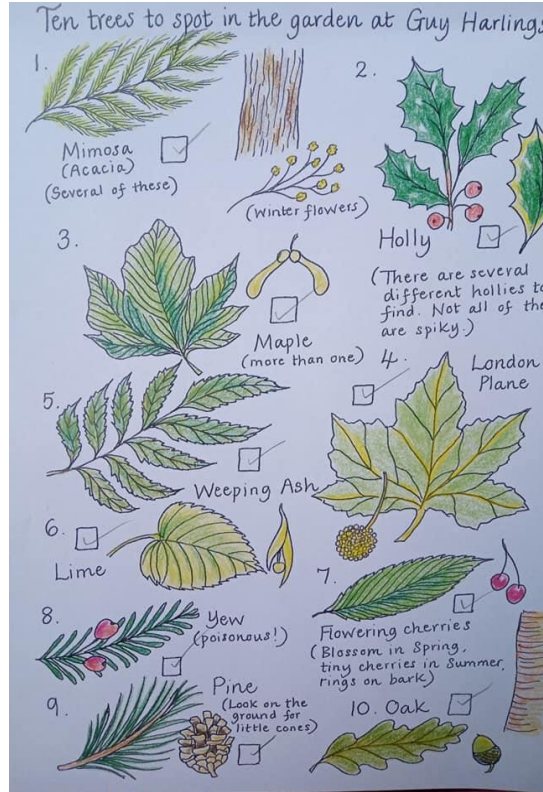 Ten trees to spot in the garden at Guy Harlings
1.
Mimosa
(Acacia)
(Several of these)
(Winter flowers)
2.
Holly
(There are several
different hollies to
find. Not all of the
are spiky.)
3.
Maple
(more than one)
4.
London
Plane
5.
Weeping Ash
6.
Lime
7.
Flowering cherries
(Blossom in Spring,
tiny cherries in Summer,
rings on bark)
8.
Yew
(poisonous!)
9.
Pine
(Look on the
ground for
little cones)
10. Oak